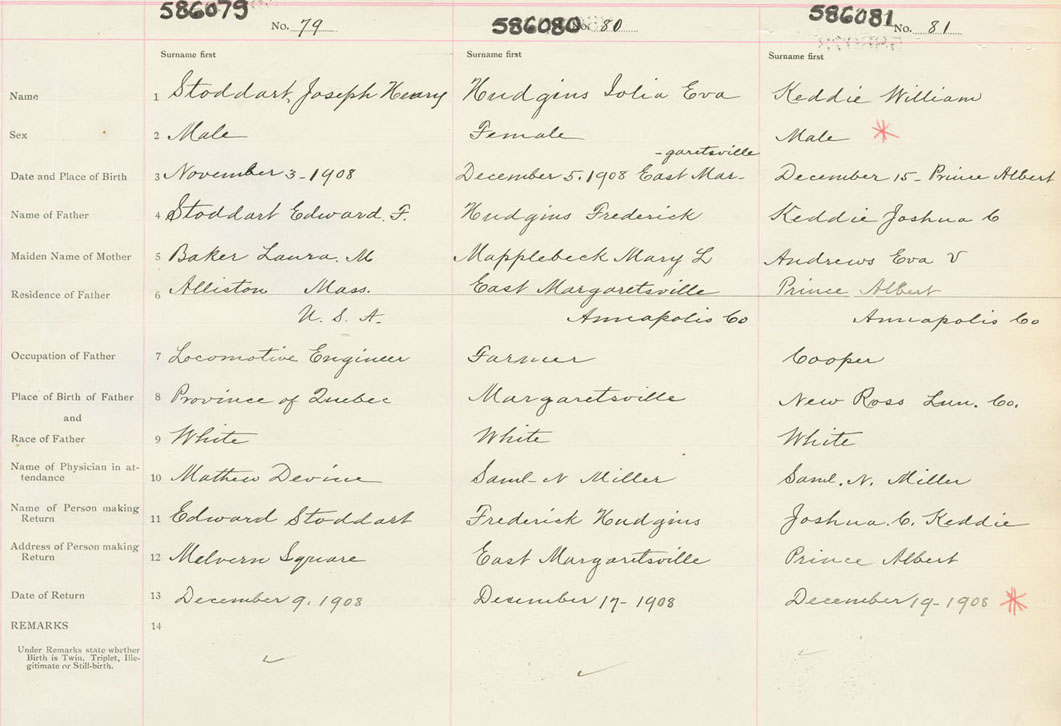 586079 586080 586081
No. 79 No. 80 No. 81
Surname first Surname first Surname first
Name 1 Stoddart, Joseph Henry Hudgins Iolia Eva Keddie William
Sex 2 Male Female Male *
-garetsville
Date and Place of Birth 3 November 3-1908 December 5. 1908 East Mar- December 15- Prince Albert
Name of Father 4 Stoddart Edward. F. Hudgins Frederick Keddie Joshua C
Maiden Name of Mother 5 Baker Laura. M Mapplebeck Mary L Andrews Eva V
Residence of Father 6 Alliston Mass. East Margaretsville Prince Albert
U. S. A. Annapolis Co Annapolis Co
Occupation of Father 7 Locomotive Engineer Farmer Cooper
Place of Birth of Father 8 Province of Quebec Margaretsville New Ross Lun. Co.
and
Race of Father 9 White White White
Name of Physician in at-
tendance 10 Mathew Devine Saml N Miller Saml. N. Miller
Name of Person making
Return 11 Edward Stoddart Frederick Hudgins Joshua. C. Keddie
Address of Person making
Return 12 Melvern Square East Margaretsville Prince Albert
Date of Return 13 December 9. 1908 Desember 17- 1908 December 19- 1908 *
REMARKS 14
Under Remarks state whether
Birth is Twin, Triplet, Ille-
gitimate or Still-birth.